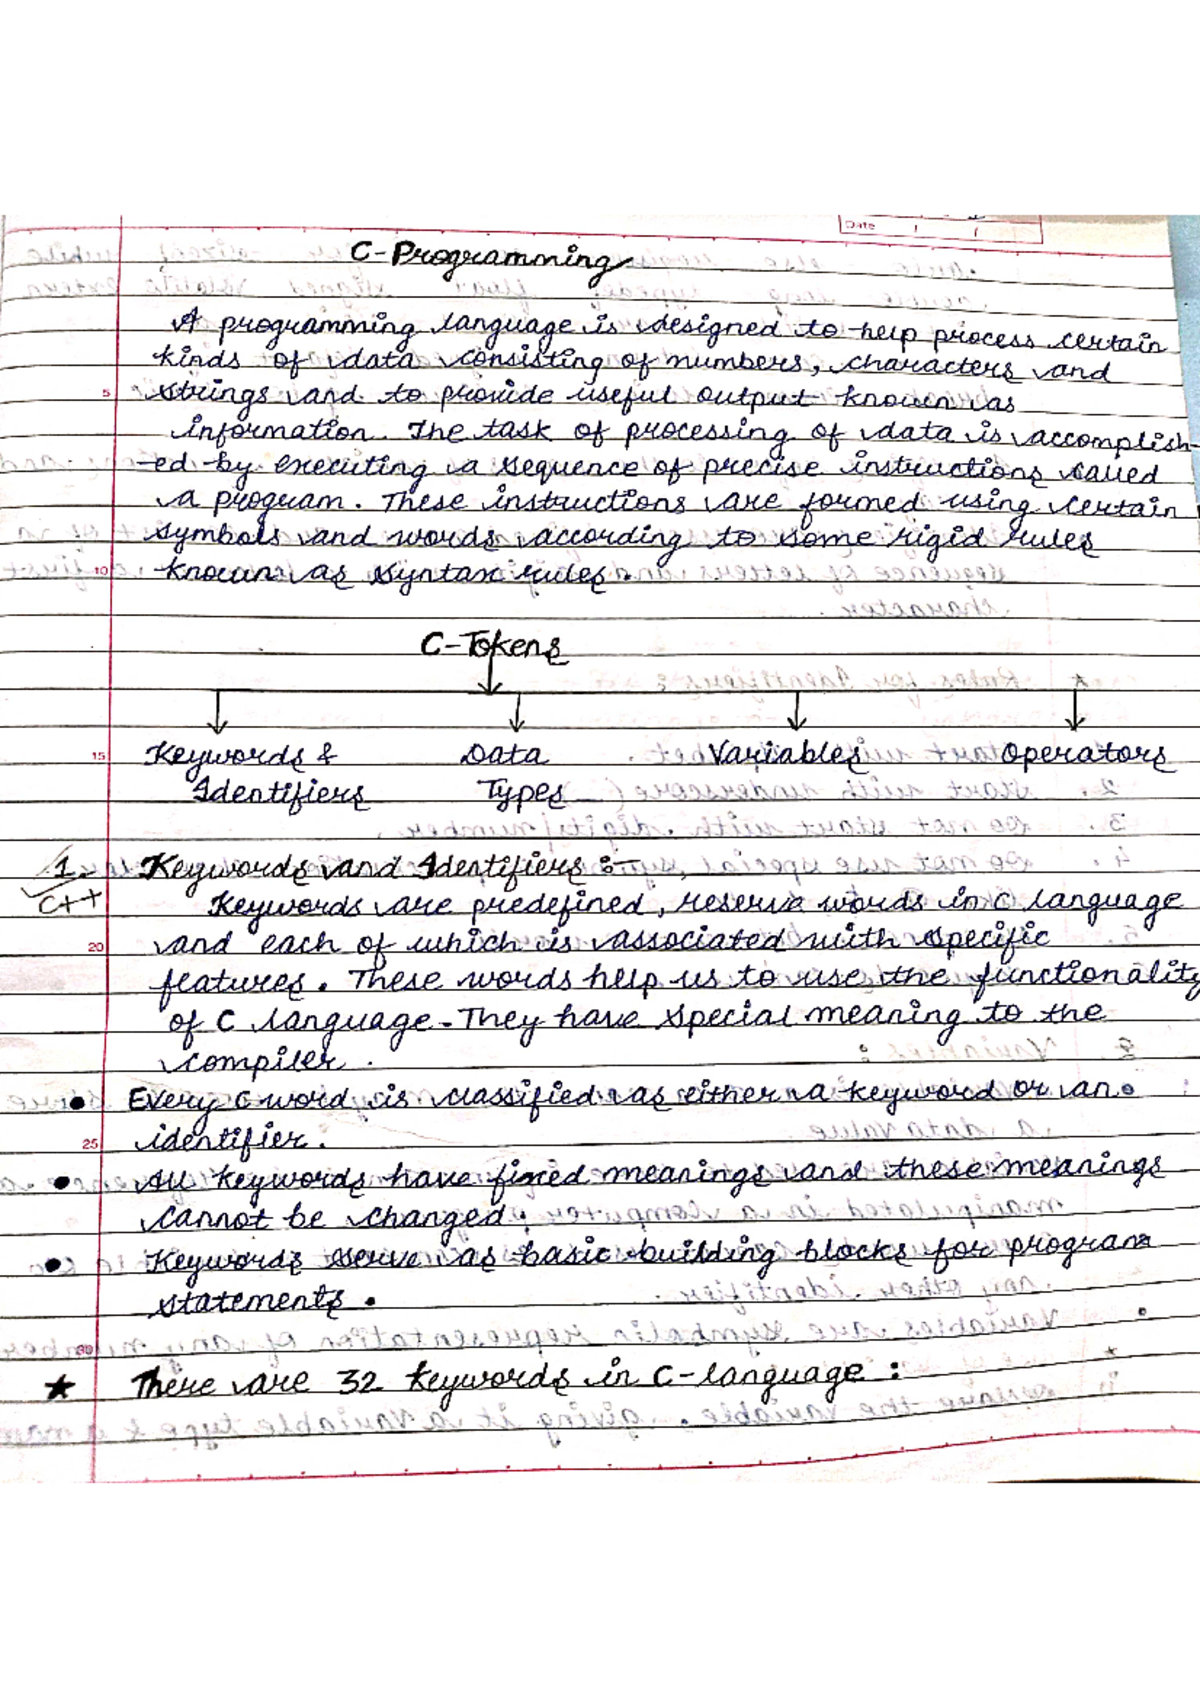 Date
C-Programming
A programming language is designed to help process certain
kinds of data consisting of numbers, characters and
5 strings and to provide useful output known as
information. The task of processing of data is accomplish-
-ed by executing a sequence of precise instructions called
a program. These instructions are formed using certain
symbols and words according to some rigid rules
10 known as syntax rules.
C-Tokens
15 Keywords & Data Variables Operators
Identifiers Types
1. Keywords and Identifiers :-
C++ Keywords are predefined, reserve words in C language
20 and each of which is associated with specific
features. These words help us to use the functionality
of C language. They have special meaning to the
compiler.
• Every C word is classified as either a keyword or an
25 identifier.
• All keywords have fixed meanings and these meanings
cannot be changed.
• Keywords serve as basic building blocks for program
statements.
30
★ There are 32 keywords in C-language :